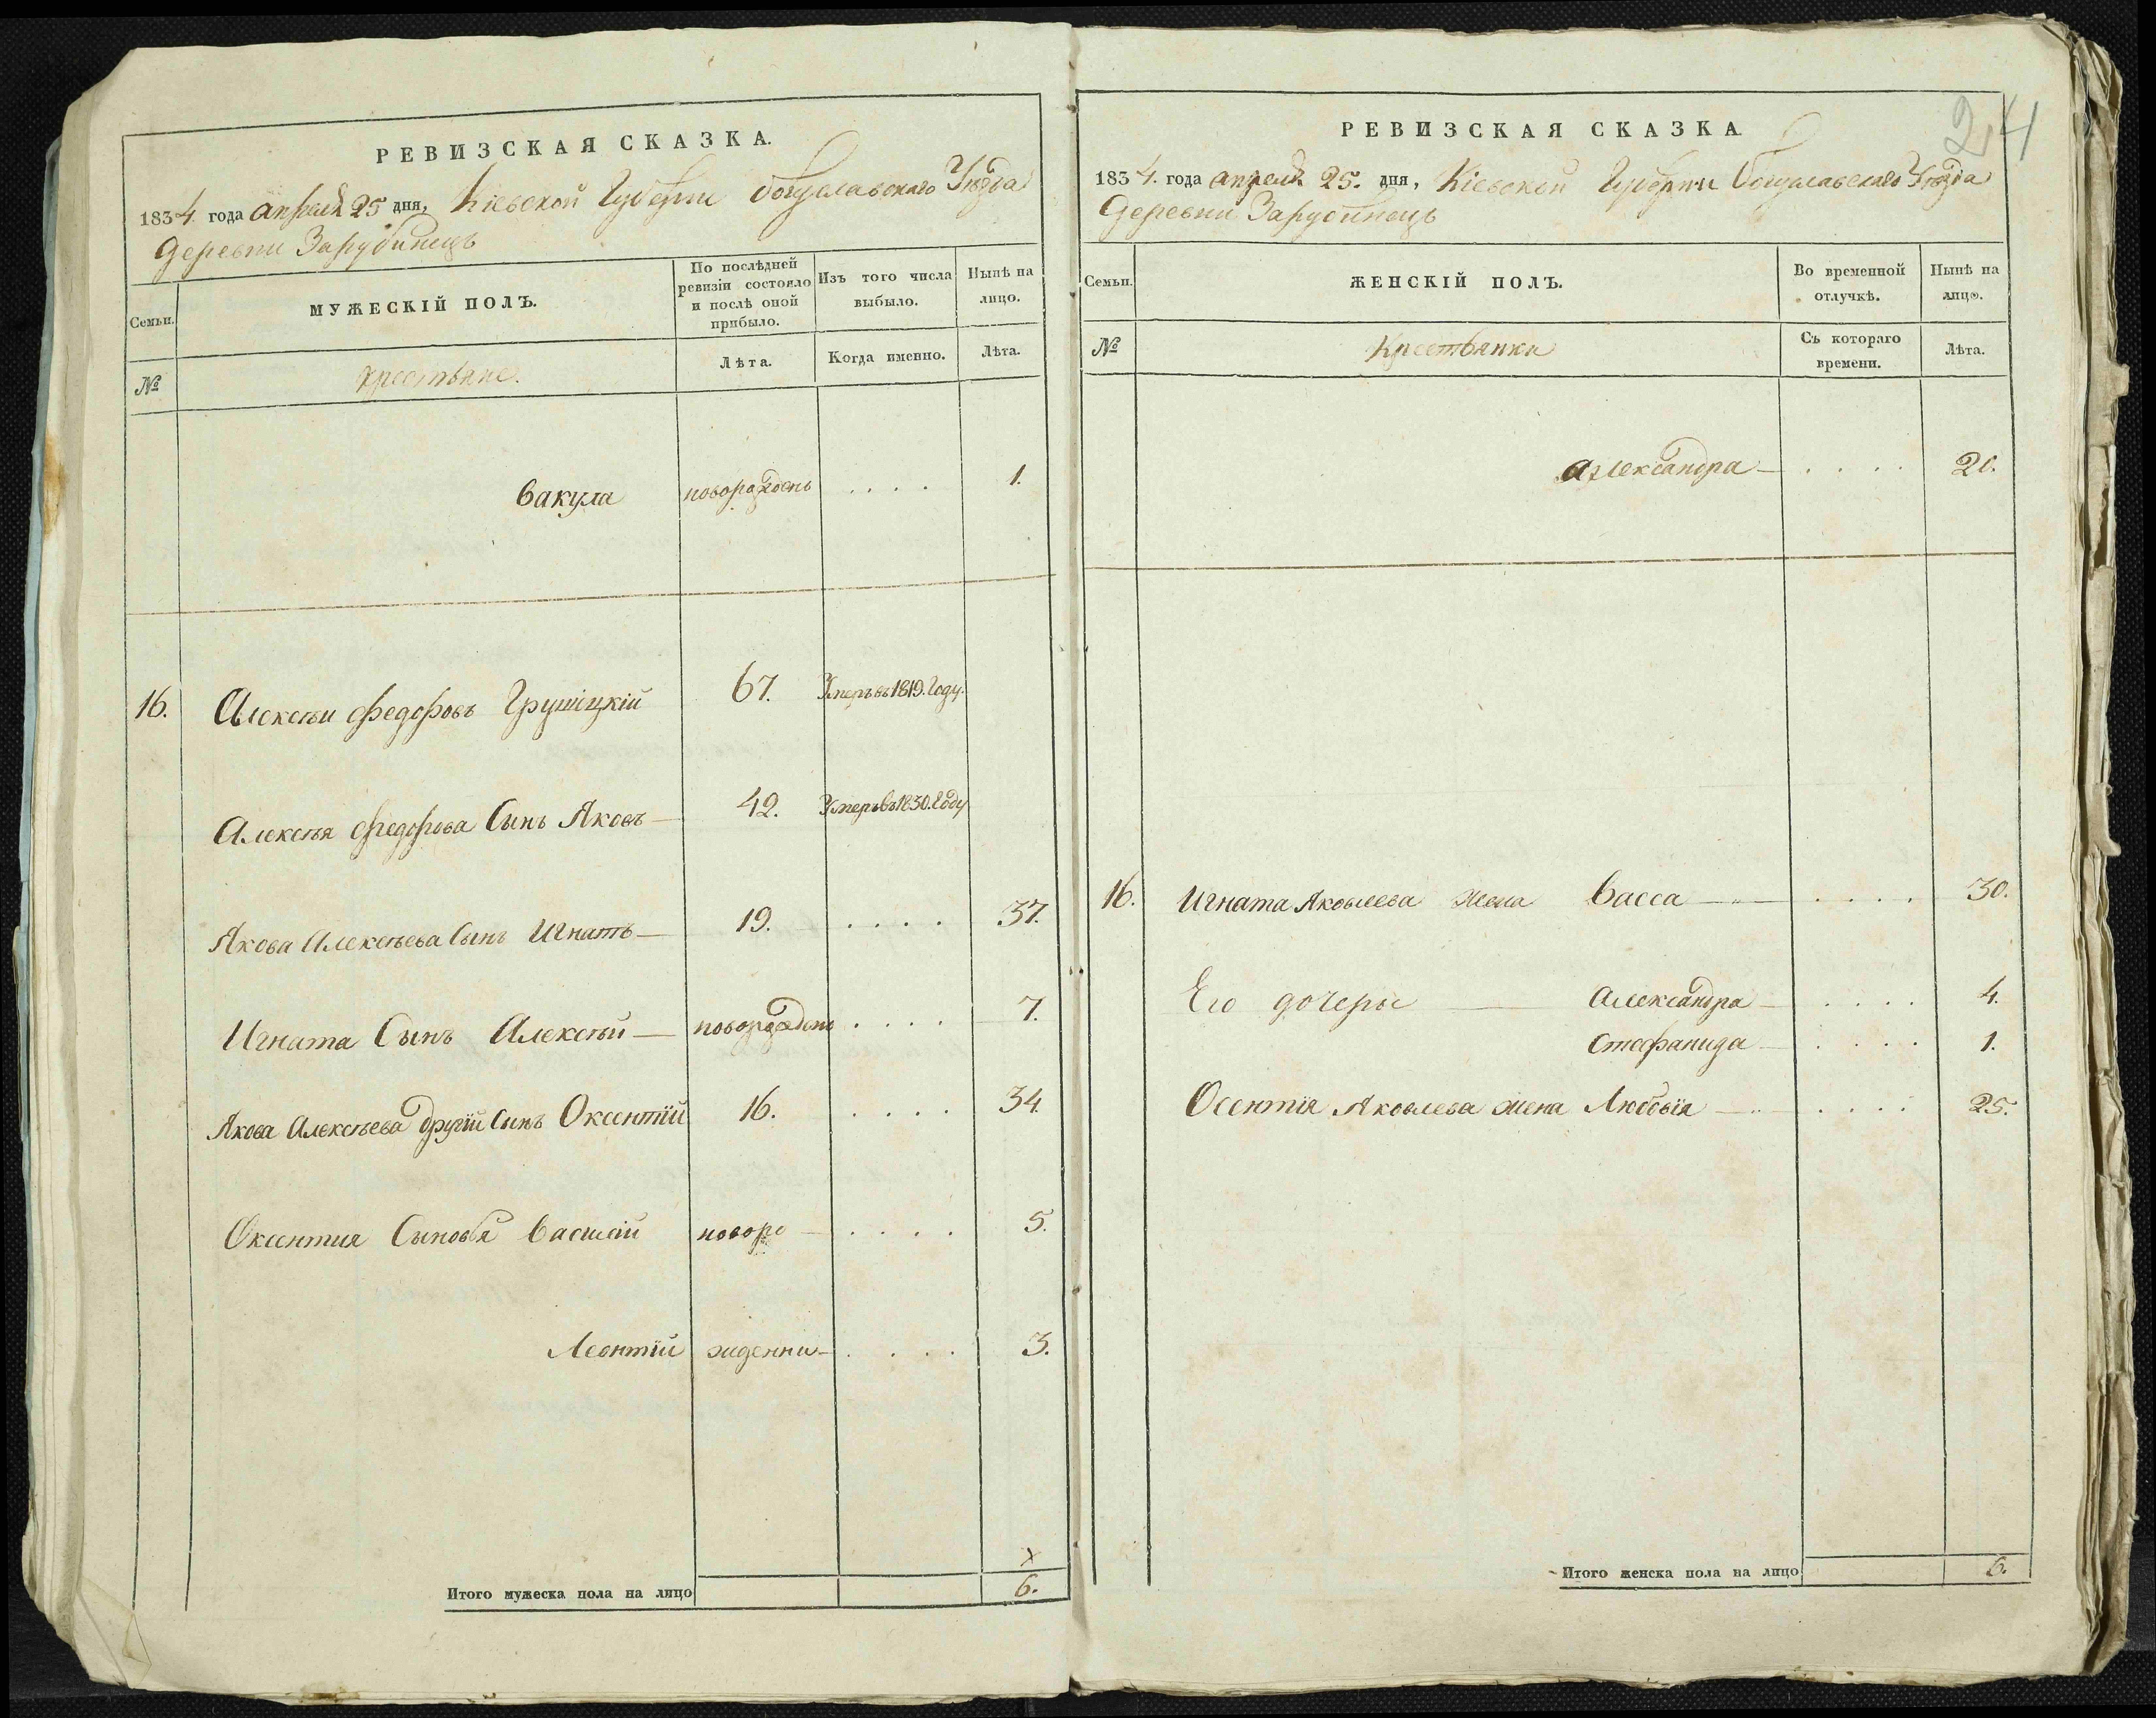 РЕВИЗСКАЯ СКАЗКА.
1834. года апреля 25 дня, Кіевской Губерніи Богуславского Уѣзда
деревни Зарубинецъ
Семьи.
МУЖЕСКІЙ ПОЛЪ.
По послѣдней ревизіи состояло и послѣ оной прибыло.
Изъ того числа выбыло.
Нынѣ на лицо.
№
крестьяне.
Лѣта.
Когда именно.
Лѣта.
Вакула новорожденъ . . . . 1.
16. Алексѣй Федоровъ Грушіцкій 67. Умеръ въ 1819. Году.
Алексѣя Федорова Сынъ Яковъ 42. Умеръ въ 1830. Году
Якова Алексѣева Сынъ Игнатъ 19. . . . . 37.
Игната Сынъ Алексѣй новорожденъ . . . . 7.
Якова Алексѣева другій Сынъ Оксентій 16. . . . . 34.
Оксентия Сыновя Василій новоро . . . . 5.
Леонтій жденни . . . . 3.
х
Итого мужеска пола на лицо 6.
24
РЕВИЗСКАЯ СКАЗКА.
1834. года апреля 25. дня, Кіевской Губерніи Богуславского Уѣзда
деревни Зарубинецъ
Семьи.
ЖЕНСКІЙ ПОЛЪ.
Во временной отлучкѣ.
Нынѣ на лицо.
№
Крестьянки
Съ котораго времени.
Лѣта.
Александра . . . . 20.
16. Игната Яковлева жена Васса . . . . 30.
Его дочеры Александра . . . . 4.
Стефанида . . . . 1.
Осентія Яковлева жена Любовія . . . . 25.
Итого женска пола на лицо 6.